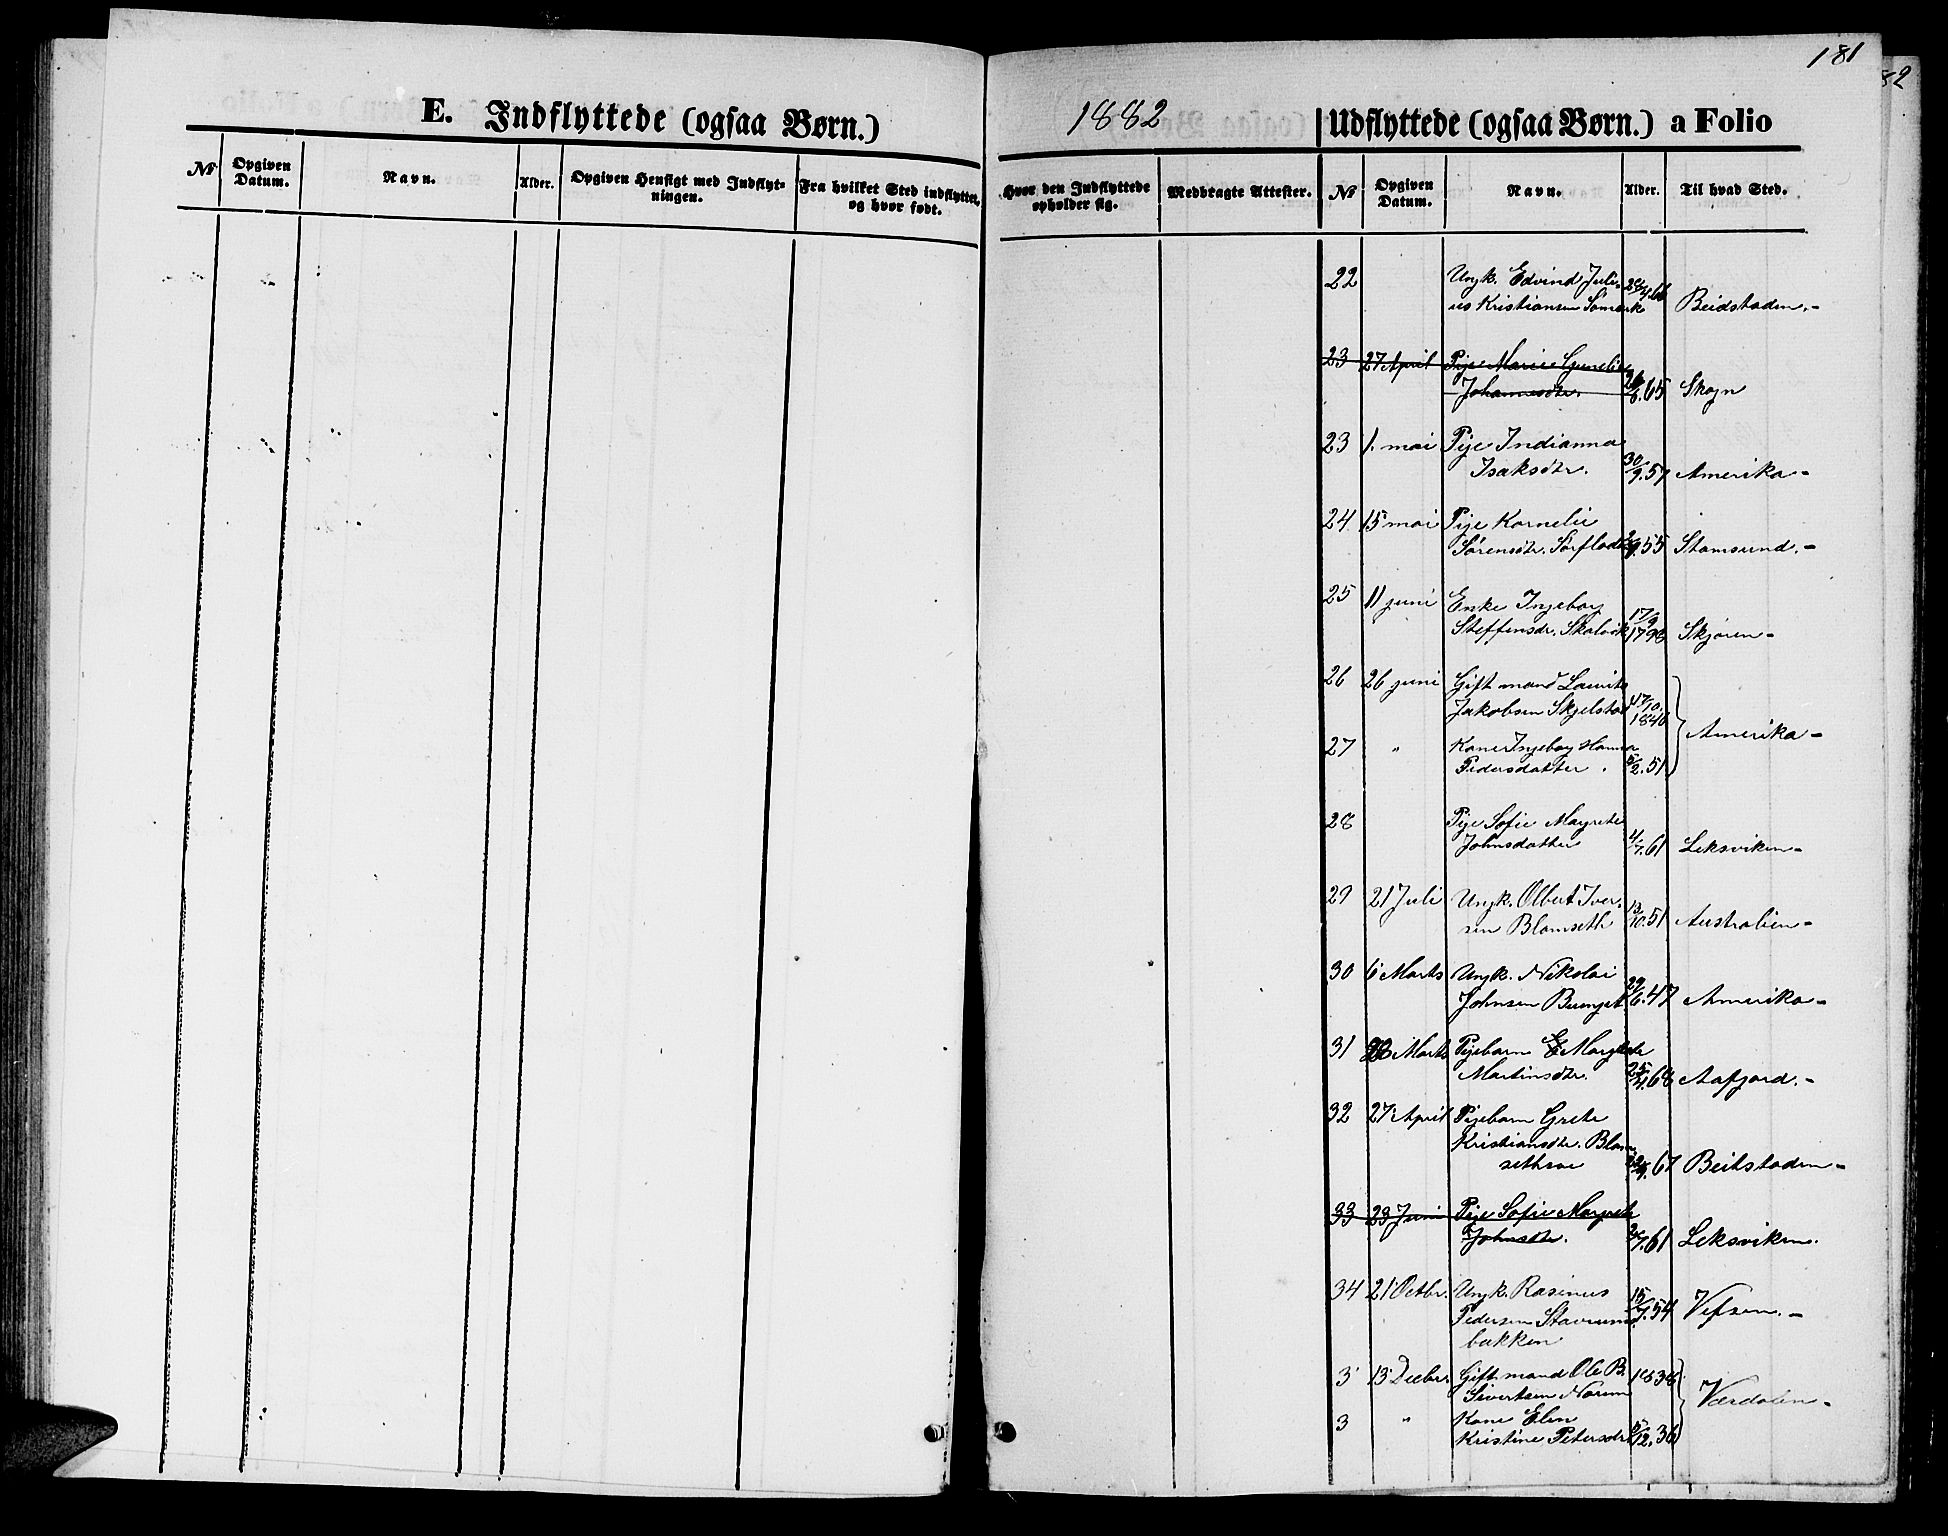 181
82
E. Indflyttede (ogsaa Børn.)
1882
Udflyttede (ogsaa Børn.) a Folio
No
Opgiven Datum.
Navn.
Alder.
Opgiven Hensigt med Indflyt-
ningen.
Fra hvilket Sted indflyttet,
og hvor født.
Hvor den Indflyttede
opholder sig.
Medbragte Attester.
No
Opgiven Datum.
Navn.
Alder.
Til hvad Sted.
22 Ungk. Edvind Juli-
us Kristiansen Sømark
Beidstaden.-
23 27 April Pige Marie
Johannesdtr. 65 Skogn
23 1. mai Pige Indianna
Isaksdtr. 30/9.57 Amerika-
24 15 mai Pige Kornelie
Sørensdtr. 55 Stamsund.-
25 11 juni Enke Ingeborg 17/9
Steffensdr. Skalvik 1798 Skjøren-
26 26 juni Gift mand Laurits
Jakobsen Skjelstad 17/10. 1846
Amerika-
27 " Kone Ingebog Hanna
Pedersdatter. 5/2.51
28 Pige Sofie Margrete
Johnsdatter 4/7.61 Leksviken-
29 21 Juli Ungk. Olbert Iver-
sen Blomseth 13/10.51 Australien-
30 6 Marts Ungk. Nikolai
Johnsen 29/6.47 Amerika-
31 Marts Pigebarn E Margrete
Martinsdtr. 25/4.68 Aafjord.-
32 27 April Pigebarn Grete
Kristiansdtr. Blom-
sethrøe 67 Beitstaden-
33 23 Juni Pige Sofie Margrete
Johnsdtr. 61 Leksviken.
34 21 Octbr. Ungk. Rasinus
Pedersen Stavrum- 54 Vefsen.-
bakken
3 13 Decbr. Gift mand Ole B. 1838
Sivertsen Norum
Værdalen-
3 " Kone Elen
Kristine Petersdr. /12.36